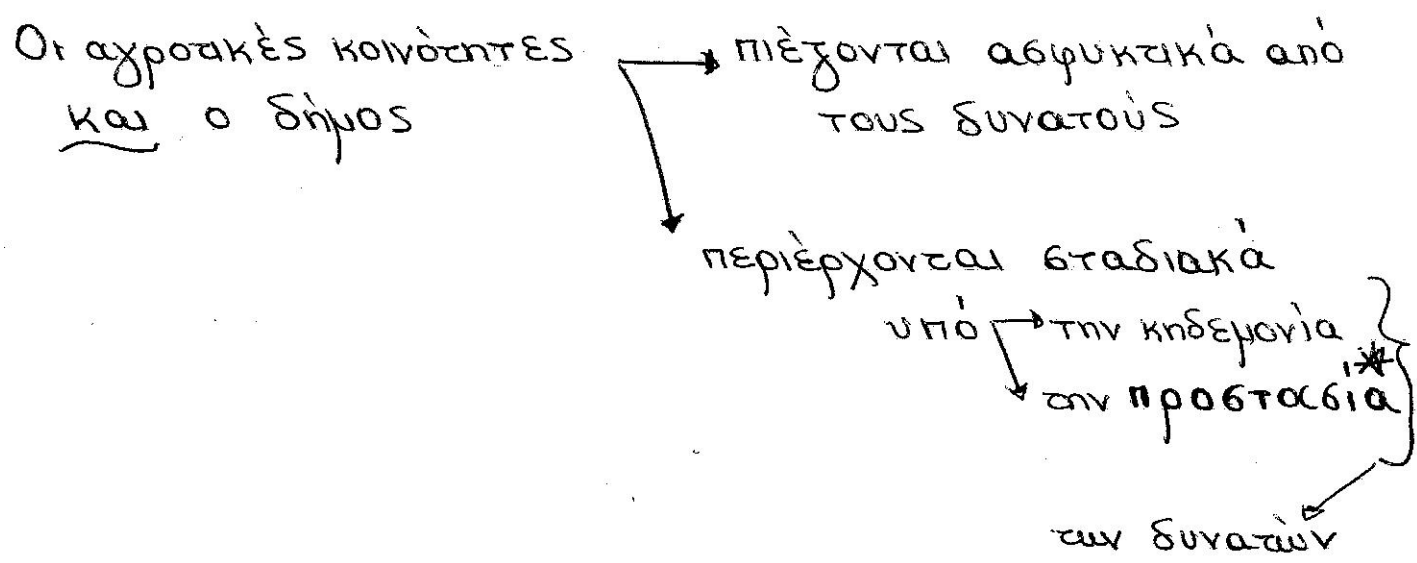 Οι αγροτικές κοινότητες
και ο δήμος
πιέζονται ασφυκτικά από
τους δυνατούς
περιέρχονται σταδιακά
υπό την κηδεμονία
την προστασία*
των δυνατών